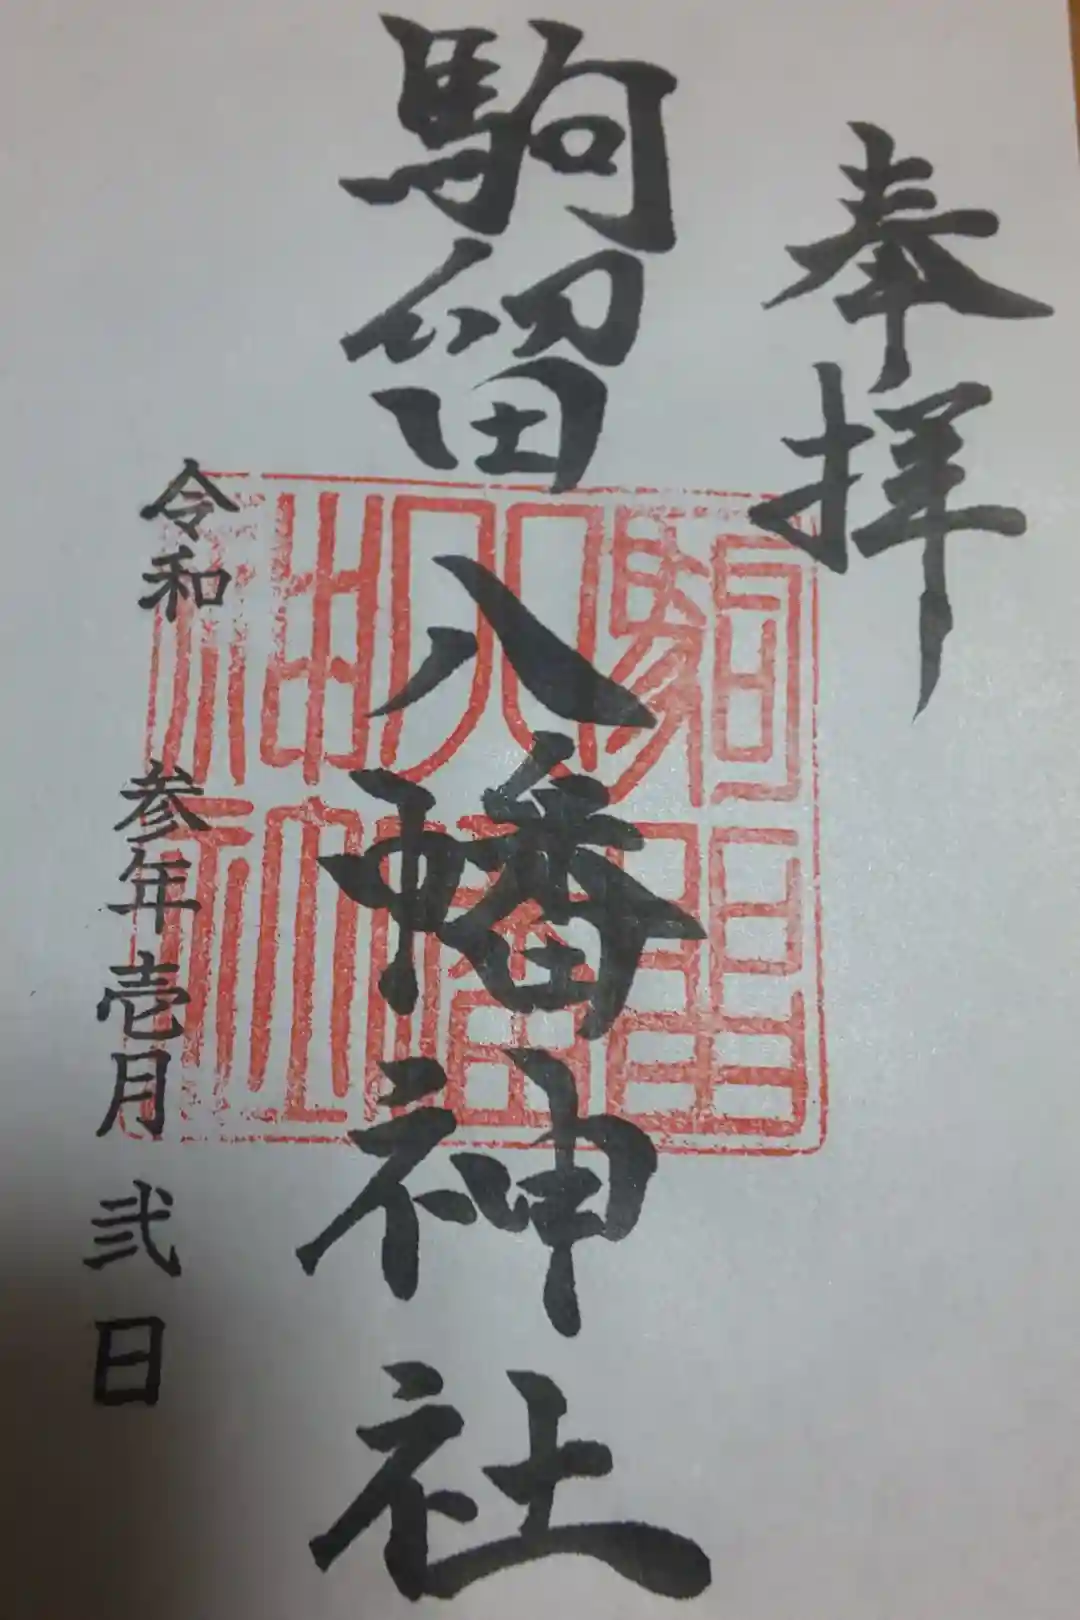 奉拝
駒留八幡神社
駒留
八幡
神社
令和参年壱月弐日